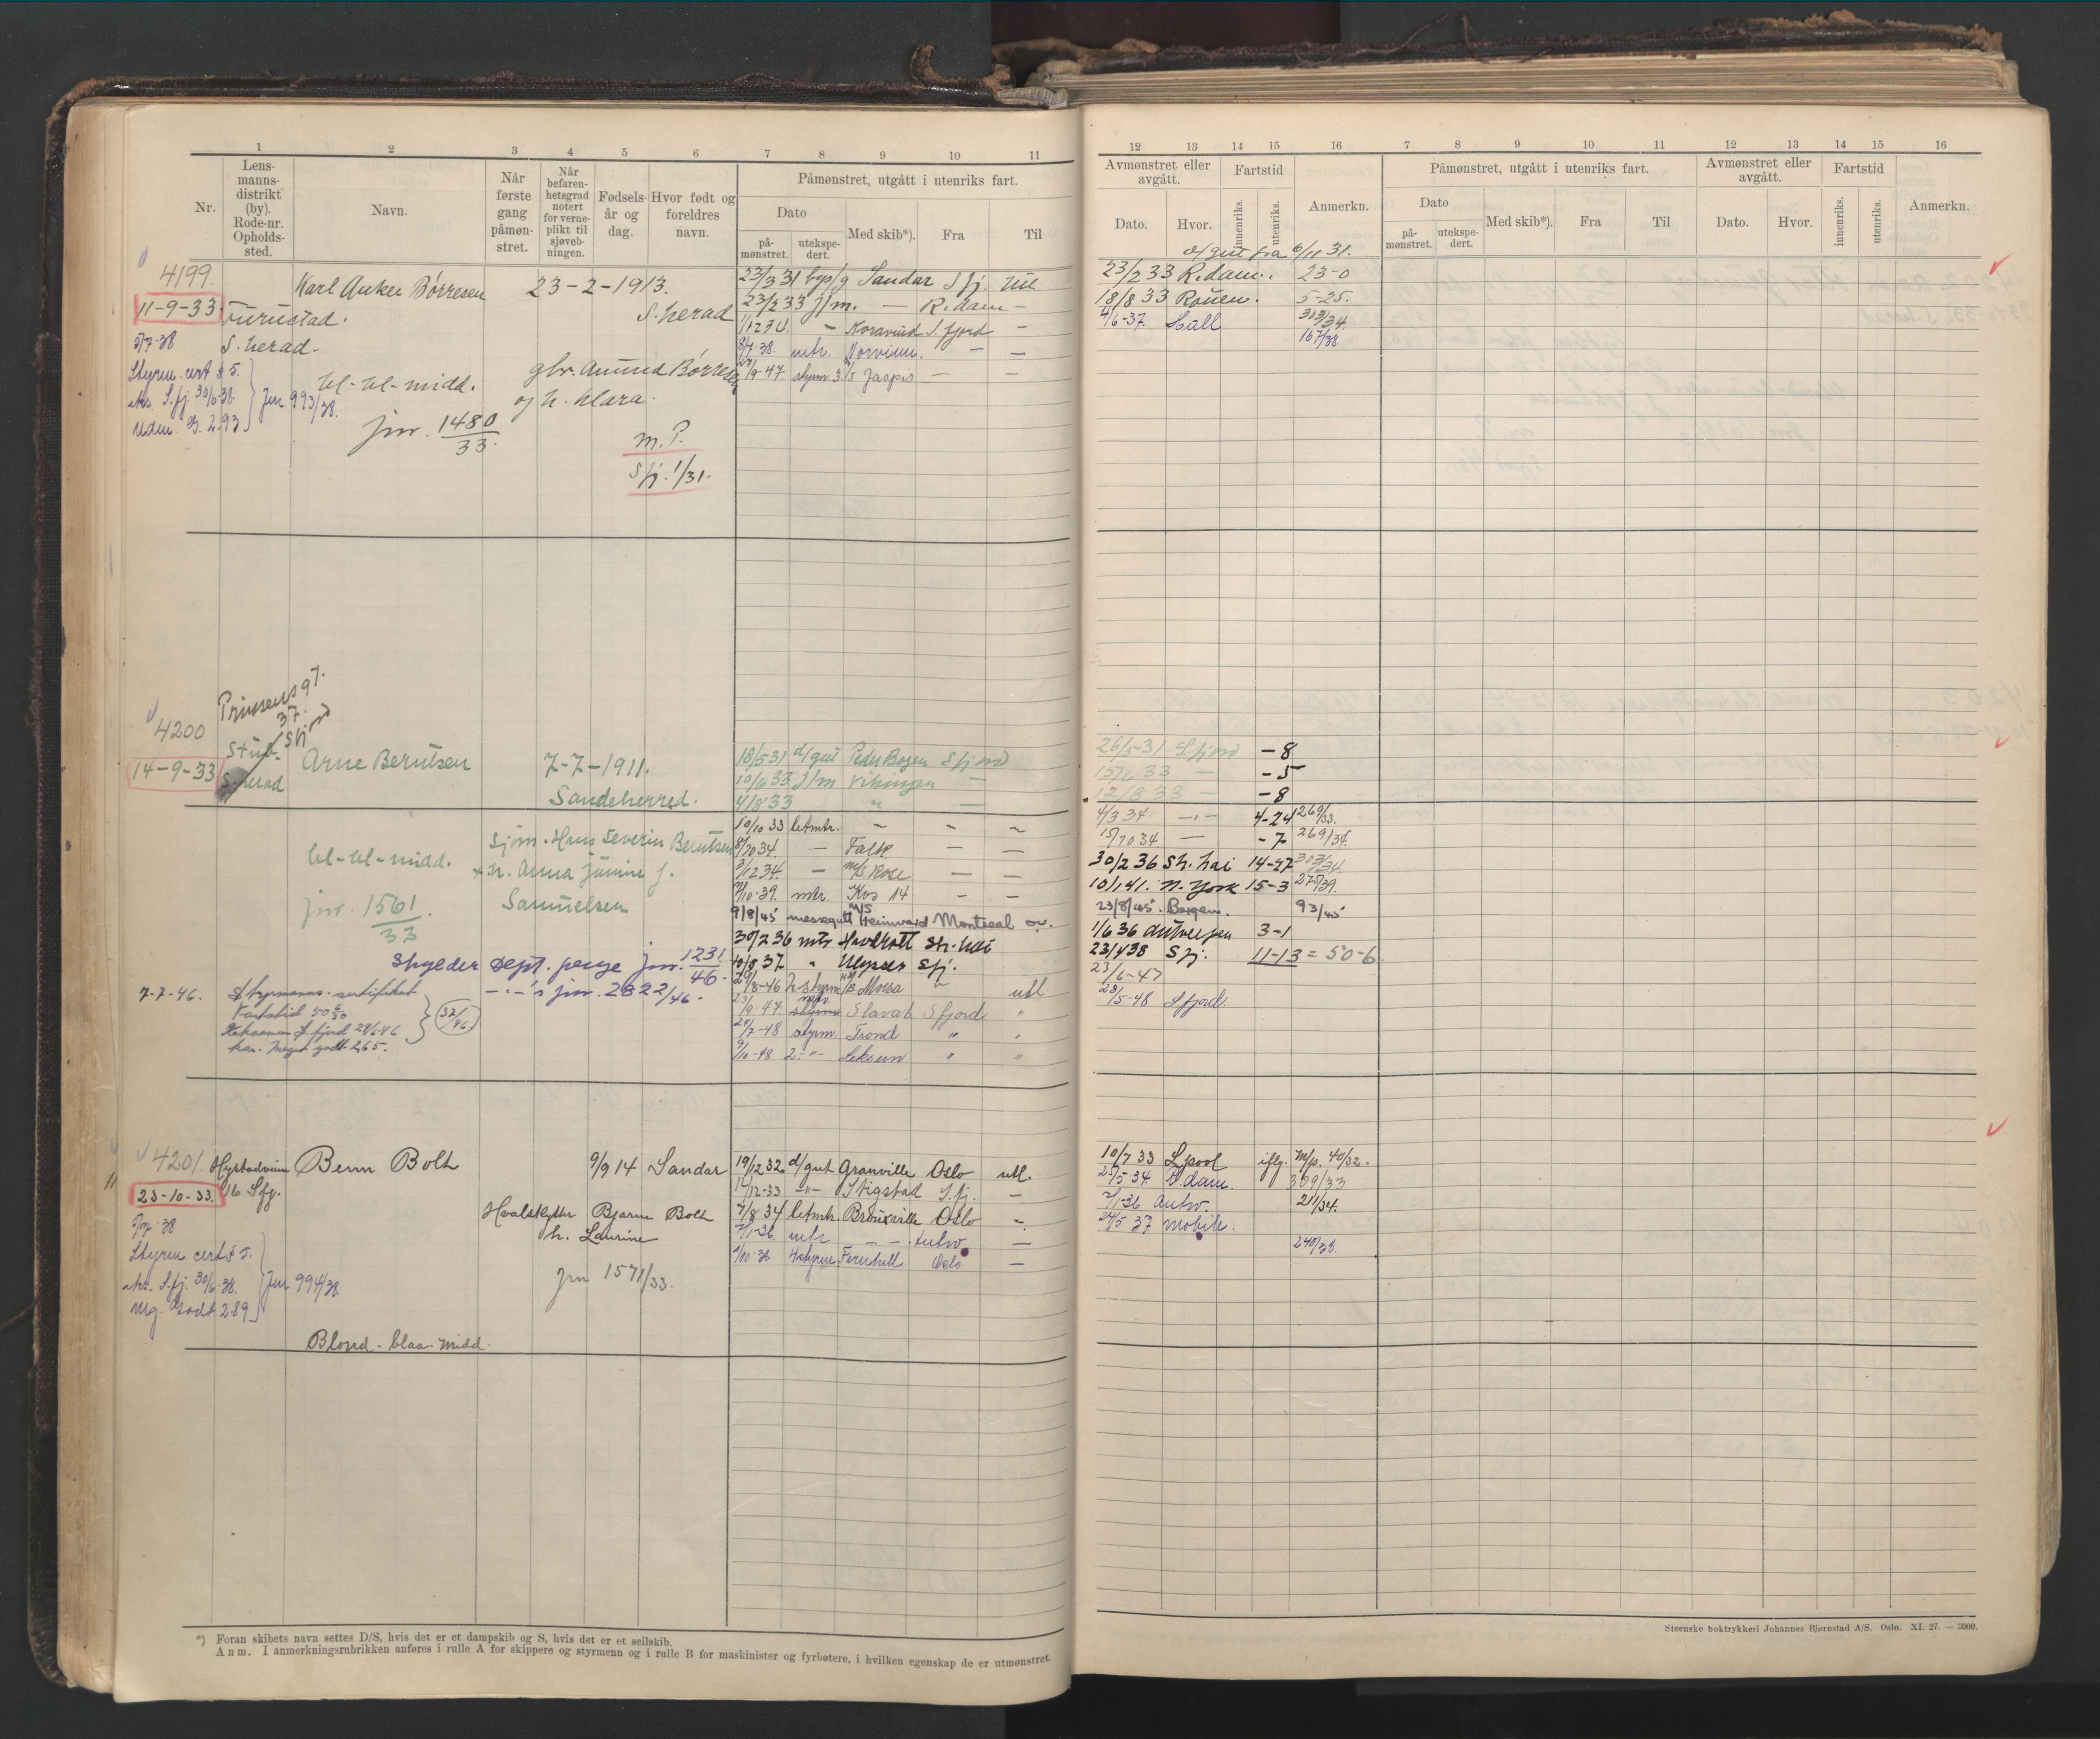 1 2 3 4 5 6 7 8 9 10 11
Nr.
Lens-
manns-
distrikt
(by).
Rode-nr.
Opholds-
sted.
Navn.
Når
første
gang
påmøn-
stret.
Når
befaren-
hetsgrad
notert
for verne-
plikt til
sjøveb-
ningen.
Fødsels-
år og
dag.
Hvor født og
foreldres
navn.
Påmønstret, utgått i utenriks fart.
Dato
på-
mønstret.
utekspe-
dert.
Med skib*).
Fra
Til
4199.
11-9-33
S. herad.
Karl Anker Børresen 23-2-1913.
S. herad
23/3 31 Sandar S fj. utl
23/2 33 j/m. — R.dam —
1/12 34 - S. fjord —
8/7 38. mtr. — —
9-47. styrm 3 M/S Jaspis — —
5/7-38
Styrm. cert § 5.
S. fj. 30/6-38.
Jnr. 993/38.
bl-bl-midd.
jnr. 1480/33.
og h. Klara.
m. P.
S fj. 1/31.
Prinsensgt.
37.
4200
14-9-33
S. herad
Arne Berntsen 7-7-1911.
Sandeherred.
18/5 31 d/gut Peder Bogen Sfjord
10/6 33 j/m Vikingen —
4/8 33 " —
10/10 33 letmtr. — — —
8/10 34. — Falk — —
3/12 34. — M/S. Rose — —
10-39. mtr. Kos 14 — —
9/8/45 messegutt M/S Heimvard Montreal
30/2 36 mtr Havkatt Sh. hai
10/8 37 " Ulysses Sfj.
8-46 2. styrm M/S Morsa " utl
9-47. Slavat Sfjord "
7-48 styrm Trond " "
10-48 2-"- " "
bl-bl-midd.
Sjøm. Hans Severin Berntsen
h. Anna
Samuelsen
jnr. 1561/33
Skylder Dept. penge jnr. 1231/46.
—.— jnr. 2822/46.
7-7-46. Styrmanns-sertifikat
Fartstid
fjord
Meget godt 2,65.
32/46
4201.
23-10-33.
16 Sfj.
Benn Bolt 9/9 14 Sandar
19/12 32 d/gut Granville Oslo utl.
12-33 —"— Stigstad S.fj. —
7/8 34 letmtr. Brouxville Oslo —
1-36. mtr — — Antw. —
10-36 Fernhill Oslo —
Hvalskytter Bjarne Bolt
h. Laurine
jnr 1571/33.
5/7-38
Styrm. cert § 5.
S. fj. 30/6-38.
Mg. Godt 2.89
Jnr 994/38
Blond - blaa - midd.
*) Foran skibets navn settes D/S, hvis det er et dampskib og S, hvis det er et seilskib.
Anm. I anmerkningsrubrikken anføres i rulle A for skippere og styrmenn og i rulle B for maskinister og fyrbøtere, i hvilken egenskap de er utmønstret.
12 13 14 15 16 7 8 9 10 11 12 13 14 15 16
Avmønstret eller
avgått.
Dato.
Hvor.
Fartstid
innenriks.
utenriks.
Anmerkn.
Påmønstret, utgått i utenriks fart.
Dato
på-
mønstret.
utekspe-
dert.
Med skib*).
Fra
Til
Avmønstret eller
avgått.
Dato.
Hvor.
Fartstid
innenriks.
utenriks.
Anmerkn.
d/gut fra 6/11 31.
23/2 33 R.dam. 23-0
18/8 33 Rouen. 5-25.
4/6-37. Hull 303/34.
167/38.
26/5-31 Sfjord - 8
15/6 33 — - 5
12/8 33 — - 8
4/3 34 —.— 4-24 269/33.
15/10 34 — - 7 269/34.
30/2 36 Sh. hai 14-27 303/34.
10/1 41. N. York 15-3 275/39.
23/8/45. Bergen. 93/45
1/6 36 Antwerpen 3-1
23/4 38 Sfj. 11-13 = 50-6
23/6-47
28/5-48 Sfjord.
10/7 33 Lpool iflg. m/p. 40/32.
5-34. R.dam. 309/33
1-36 Antw. 211/34.
5 37 Mobile.
240/38.
Steenske boktrykkeri Johannes Bjørnstad A/S. Oslo. XI. 27. — 3000.